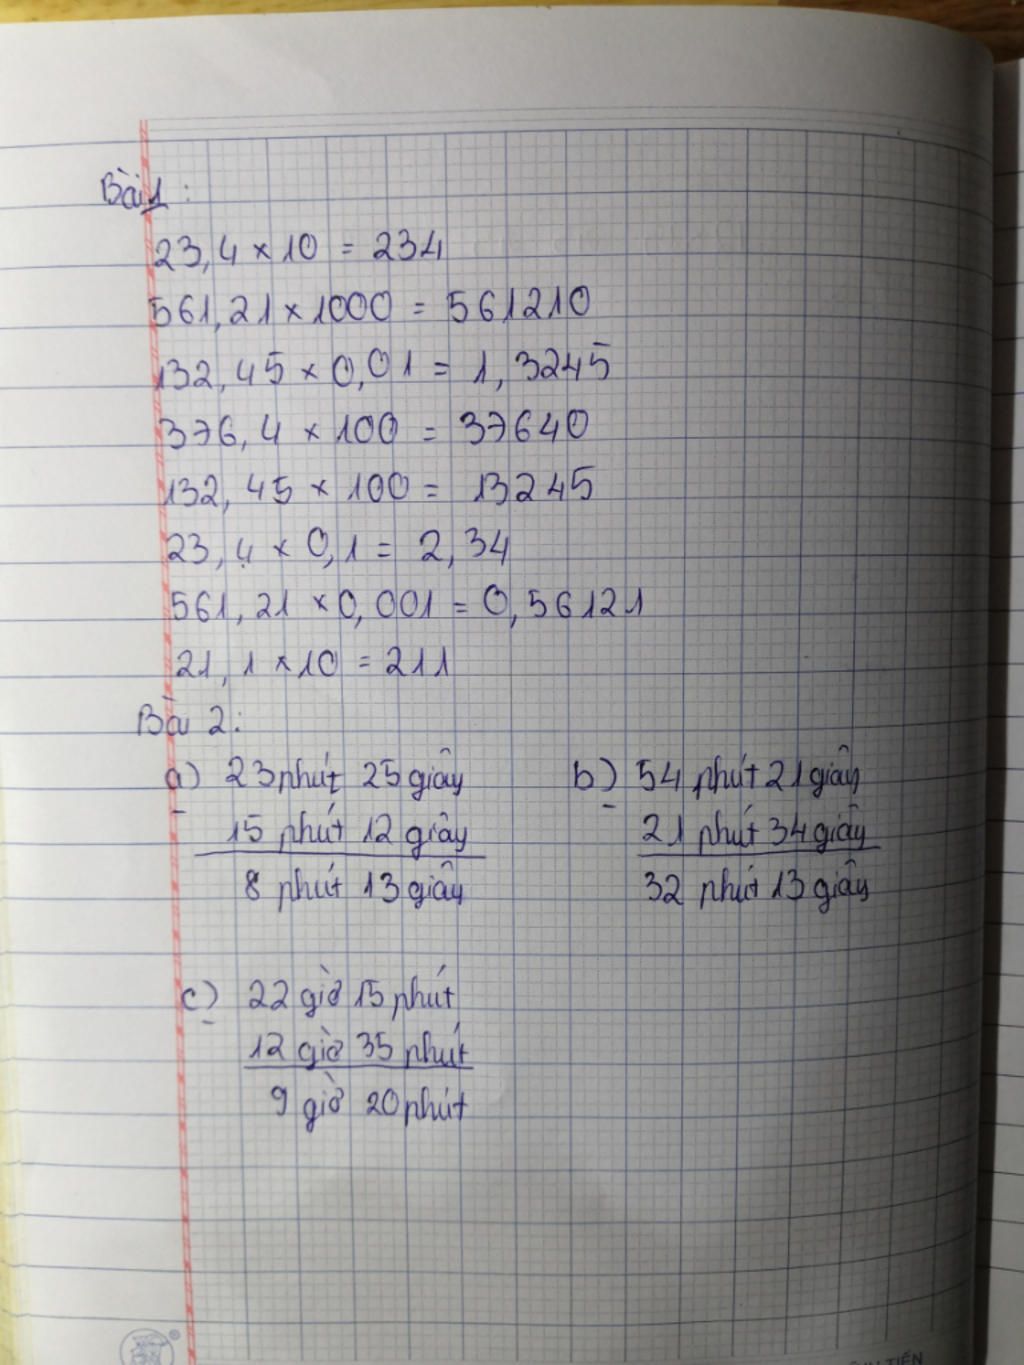 Bài 1 :
23,4 × 10 = 234
561,21 × 1000 = 561210
132,45 × 0,01 = 1,3245
376,4 × 100 = 37640
132,45 × 100 = 13245
23,4 × 0,1 = 2,34
561,21 × 0,001 = 0,56121
21,1 × 10 = 211
Bài 2 :
a) 23 phút 25 giây b) 54 phút 21 giây
- 15 phút 12 giây - 21 phút 34 giây
8 phút 13 giây 32 phút 13 giây
c) 22 giờ 15 phút
- 12 giờ 35 phút
9 giờ 20 phút
TIẾN